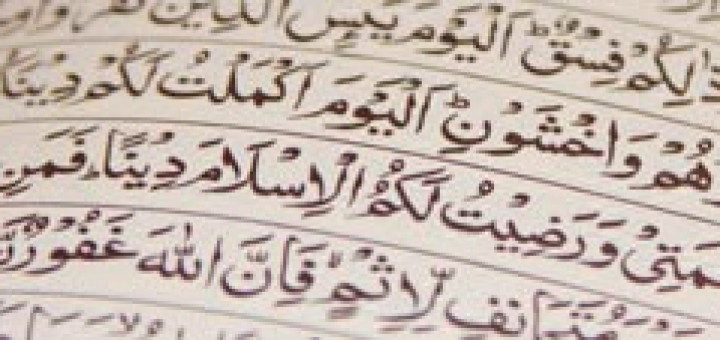 ذٰلِكُمْ فِسْقٌ ؕ اَلْيَوْمَ يَئِسَ الَّذِيْنَ كَفَرُوْا
هُمْ وَاخْشَوْنِ ؕ اَلْيَوْمَ اَكْمَلْتُ لَكُمْ دِيْنَ
مَتِيْ وَرَضِيْتُ لَكُمُ الْاِسْلَامَ دِيْنًا ؕ فَمَنِ
مُتَجَانِفٍ لِّاِثْمٍ ۙ فَاِنَّ اللّٰهَ غَفُوْرٌ